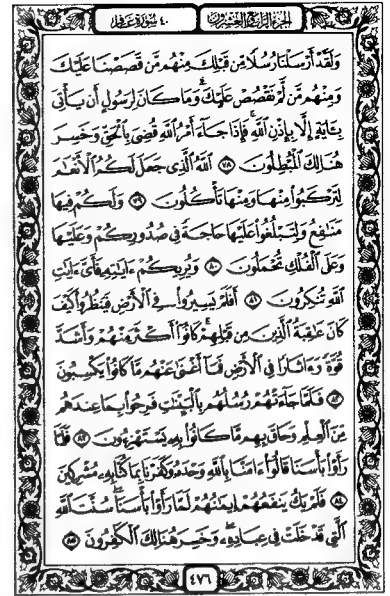 الجزء الرابع والعشرون
٤٠ سورة غافر
وَلَقَدْ أَرْسَلْنَا رُسُلًا مِّن قَبْلِكَ مِنْهُم مَّن قَصَصْنَا عَلَيْكَ
وَمِنْهُم مَّن لَّمْ نَقْصُصْ عَلَيْكَ وَمَا كَانَ لِرَسُولٍ أَن يَأْتِيَ
بِـَٔايَةٍ إِلَّا بِإِذْنِ ٱللَّهِ فَإِذَا جَآءَ أَمْرُ ٱللَّهِ قُضِيَ بِٱلْحَقِّ وَخَسِرَ
هُنَالِكَ ٱلْمُبْطِلُونَ ٧٨ ٱللَّهُ ٱلَّذِي جَعَلَ لَكُمُ ٱلْأَنْعَٰمَ
لِتَرْكَبُوا۟ مِنْهَا وَمِنْهَا تَأْكُلُونَ ٧٩ وَلَكُمْ فِيهَا
مَنَٰفِعُ وَلِتَبْلُغُوا۟ عَلَيْهَا حَاجَةً فِي صُدُورِكُمْ وَعَلَيْهَا
وَعَلَى ٱلْفُلْكِ تُحْمَلُونَ ٨٠ وَيُرِيكُمْ ءَايَٰتِهِۦ فَأَيَّ ءَايَٰتِ
ٱللَّهِ تُنكِرُونَ ٨١ أَفَلَمْ يَسِيرُوا۟ فِي ٱلْأَرْضِ فَيَنظُرُوا۟ كَيْفَ
كَانَ عَٰقِبَةُ ٱلَّذِينَ مِن قَبْلِهِمْ كَانُوٓا۟ أَكْثَرَ مِنْهُمْ وَأَشَدَّ
قُوَّةً وَءَاثَارًا فِي ٱلْأَرْضِ فَمَآ أَغْنَىٰ عَنْهُم مَّا كَانُوا۟ يَكْسِبُونَ
٨٢ فَلَمَّا جَآءَتْهُمْ رُسُلُهُم بِٱلْبَيِّنَٰتِ فَرِحُوا۟ بِمَا عِندَهُم
مِّنَ ٱلْعِلْمِ وَحَاقَ بِهِم مَّا كَانُوا۟ بِهِۦ يَسْتَهْزِءُونَ ٨٣ فَلَمَّا
رَأَوْا۟ بَأْسَنَا قَالُوٓا۟ ءَامَنَّا بِٱللَّهِ وَحْدَهُۥ وَكَفَرْنَا بِمَا كُنَّا بِهِۦ مُشْرِكِينَ
٨٤ فَلَمْ يَكُ يَنفَعُهُمْ إِيمَٰنُهُمْ لَمَّا رَأَوْا۟ بَأْسَنَا سُنَّتَ ٱللَّهِ
ٱلَّتِي قَدْ خَلَتْ فِي عِبَادِهِۦ وَخَسِرَ هُنَالِكَ ٱلْكَٰفِرُونَ ٨٥
٤٧٦